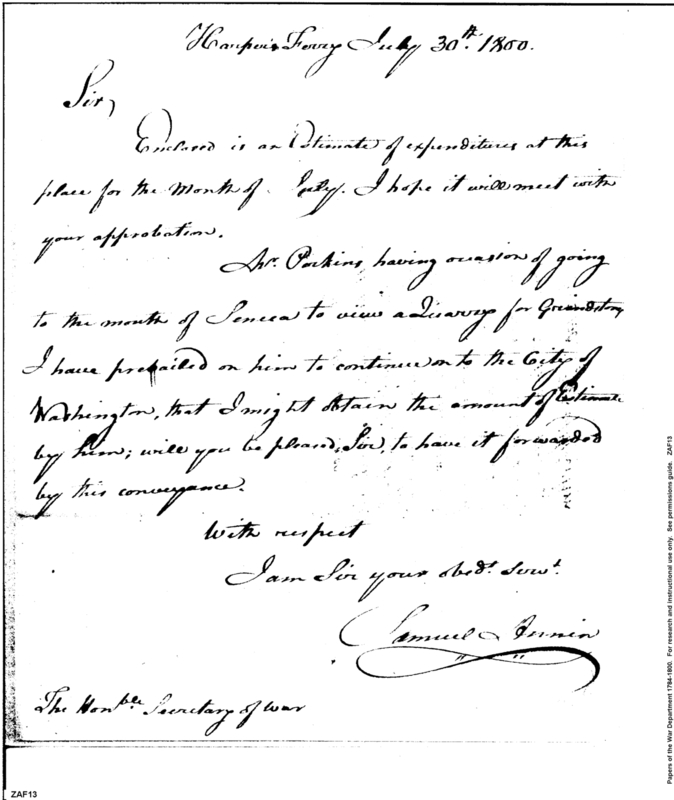 Harper's Ferry July 30th. 1800.
Sir,
Enclosed is an Estimate of expenditures at this
place for the Month of July. I hope it will meet with
your approbation.
Mr. Perkins, having occasion of going
to the mouth of Seneca to view a Quarry for Grindstone,
I have prevailed on him to continue on to the City of
Washington, that I might obtain the amount of Estimate
by him; will you be pleased, Sir, to have it forwarded
by this conveyance.
With respect
I am Sir your obedt. servt.
Samuel Annin
The Honble Secretary of War
ZAF13
Papers of the War Department 1784-1800. For research and instructional use only. See permissions guide. ZAF13